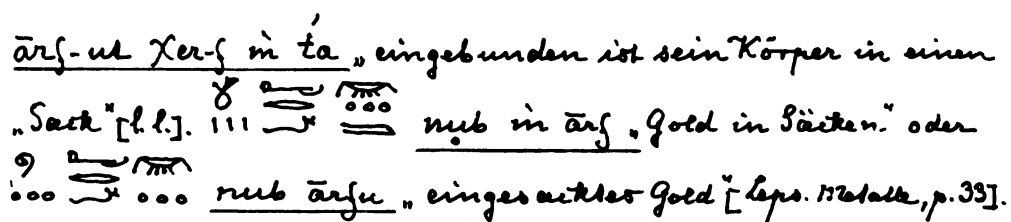 ārf-ut χer-f m ťa „eingebunden ist sein Körper in einen
„Sack“ [l. l.]. nub m ārf „Gold in Säcken.“ oder
nub ārfu „eingesacktes Gold“ [Leps. Metalle, p. 33].